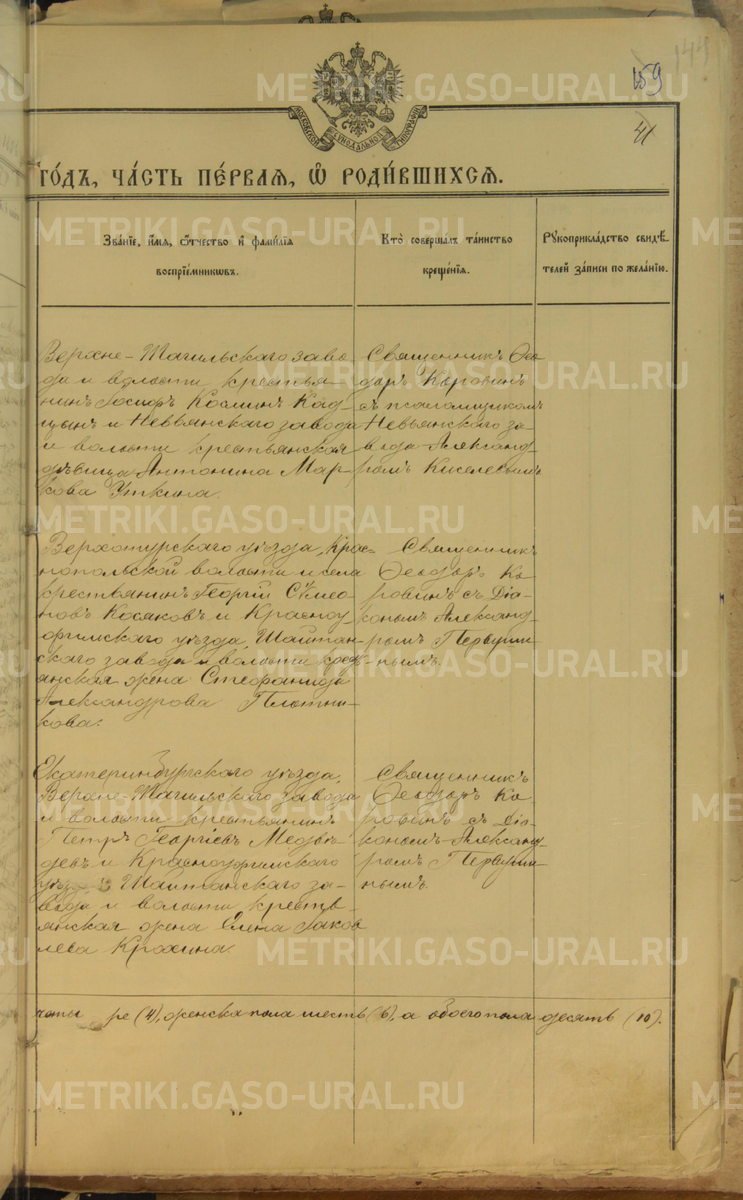 METRIKI.GASO-URAL.RU
159
41
МОСКОВСКОЙ СѴНОДАЛЬНОЙ ТИПОГРАФІИ
го́дъ, ча́сть пе́рваѧ, ѡ҆ роди́вшихсѧ.
Зва́ніе, и҆́мѧ, ѻ҆́тчество и҆ фами́лїѧ
воспрїе́мникѡвъ.
Кто̀ соверша́лъ та́инство
креще́нїѧ.
Рꙋкоприкла́дство свидѣ́-
телей за́писи по жела́нїю.
Верхне-Тагильскаго заво-
да и волости крестья-
нинъ Іосифъ Космин Кад-
цынъ и Невьянскаго завода
и волости крестьянская
дѣвица Антонина Мар-
кова Уткина.
Священникъ Ѳео-
доръ Коровинъ
съ псаломщикомъ
Невьянскаго за-
вода Александ-
ромъ Киселевымъ
METRIKI.GASO-URAL.RU
Верхотурскаго уѣзда, Крас-
нопольской волости и села
крестьянинъ Георгій Сѵмео-
новъ Косяковъ и Красноу-
фимскаго уѣзда, Шайтан-
скаго завода и волости крест-
янская жена Стефанида
Александрова Плотни-
кова.
Священникъ
Ѳеодоръ Ко-
ровинъ съ Діа-
кономъ Александ-
ромъ Первуши-
нымъ.
METRIKI.GASO-URAL.RU
Екатеринбургскаго уѣзда,
Верхне-Тагильскаго завода
и волости крестьянинъ
Петръ Георгіевъ Медвѣ-
девъ и Красноуфимскаго
уѣзда Шайтанскаго за-
вода и волости, кресть-
янская жена Елена Іаков-
лева Крохина.
Священникъ
Ѳеодоръ Ко-
ровинъ съ Діа-
кономъ Александ-
ромъ Первуши-
нымъ.
METRIKI.GASO-URAL.RU
четыре (4), женска пола шесть (6), а обоего пола десять (10).
METRIKI.GASO-URAL.RU